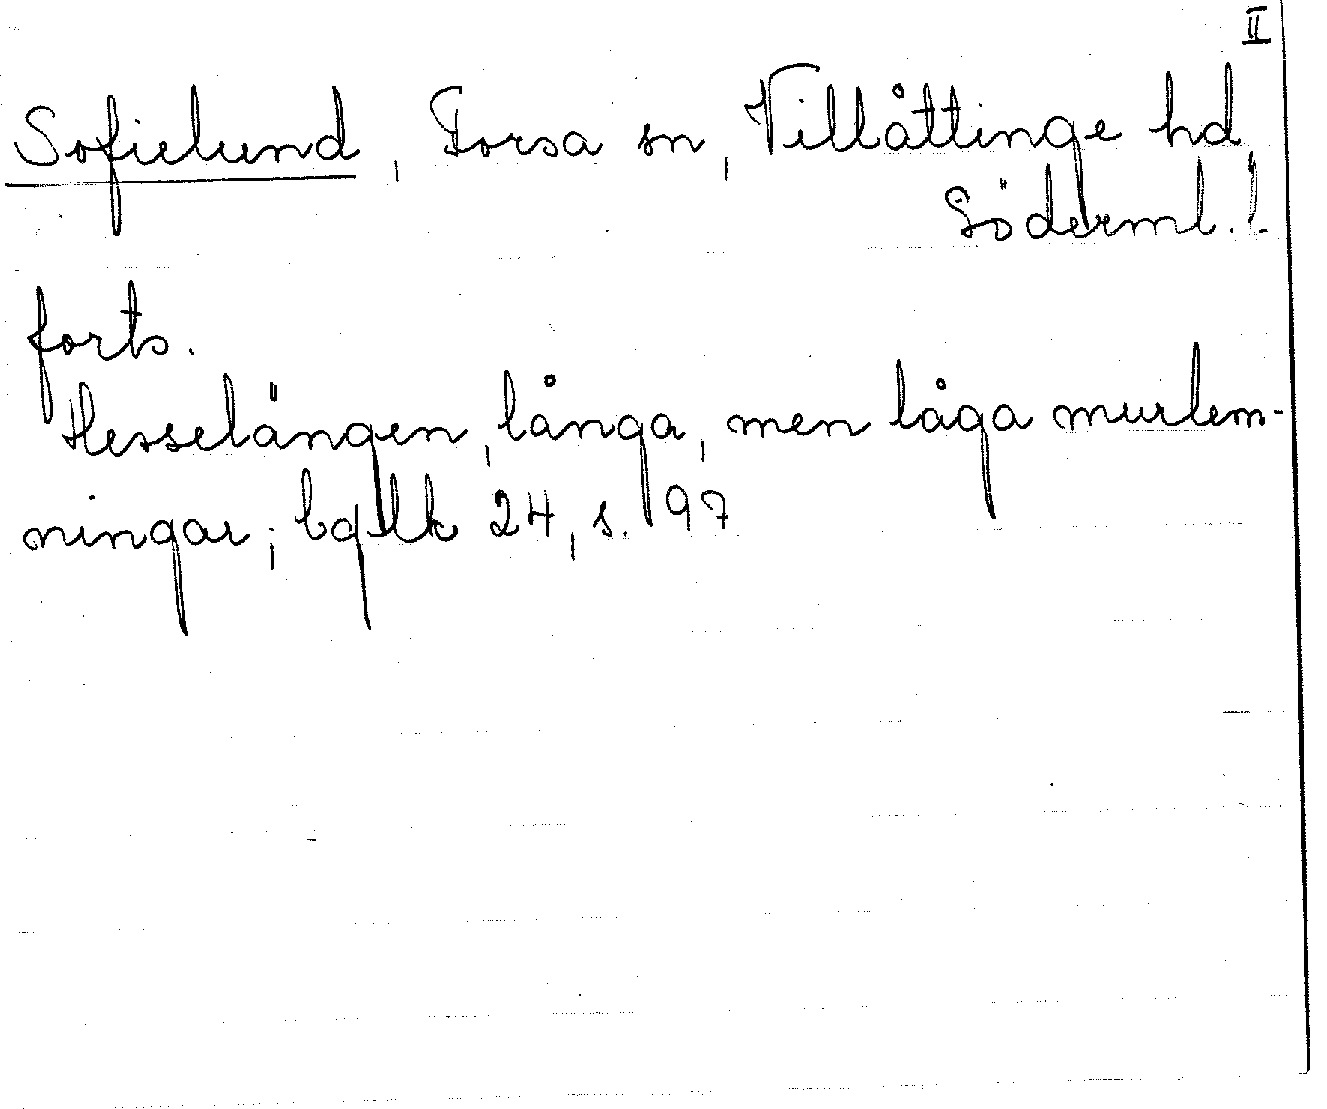 II
Sofielund, Forsa sn, Villåttinge hd,
Söderml.!
forts.
Hesselängen, långa, men låga murlem-
ningar; bglk 24, s. 97